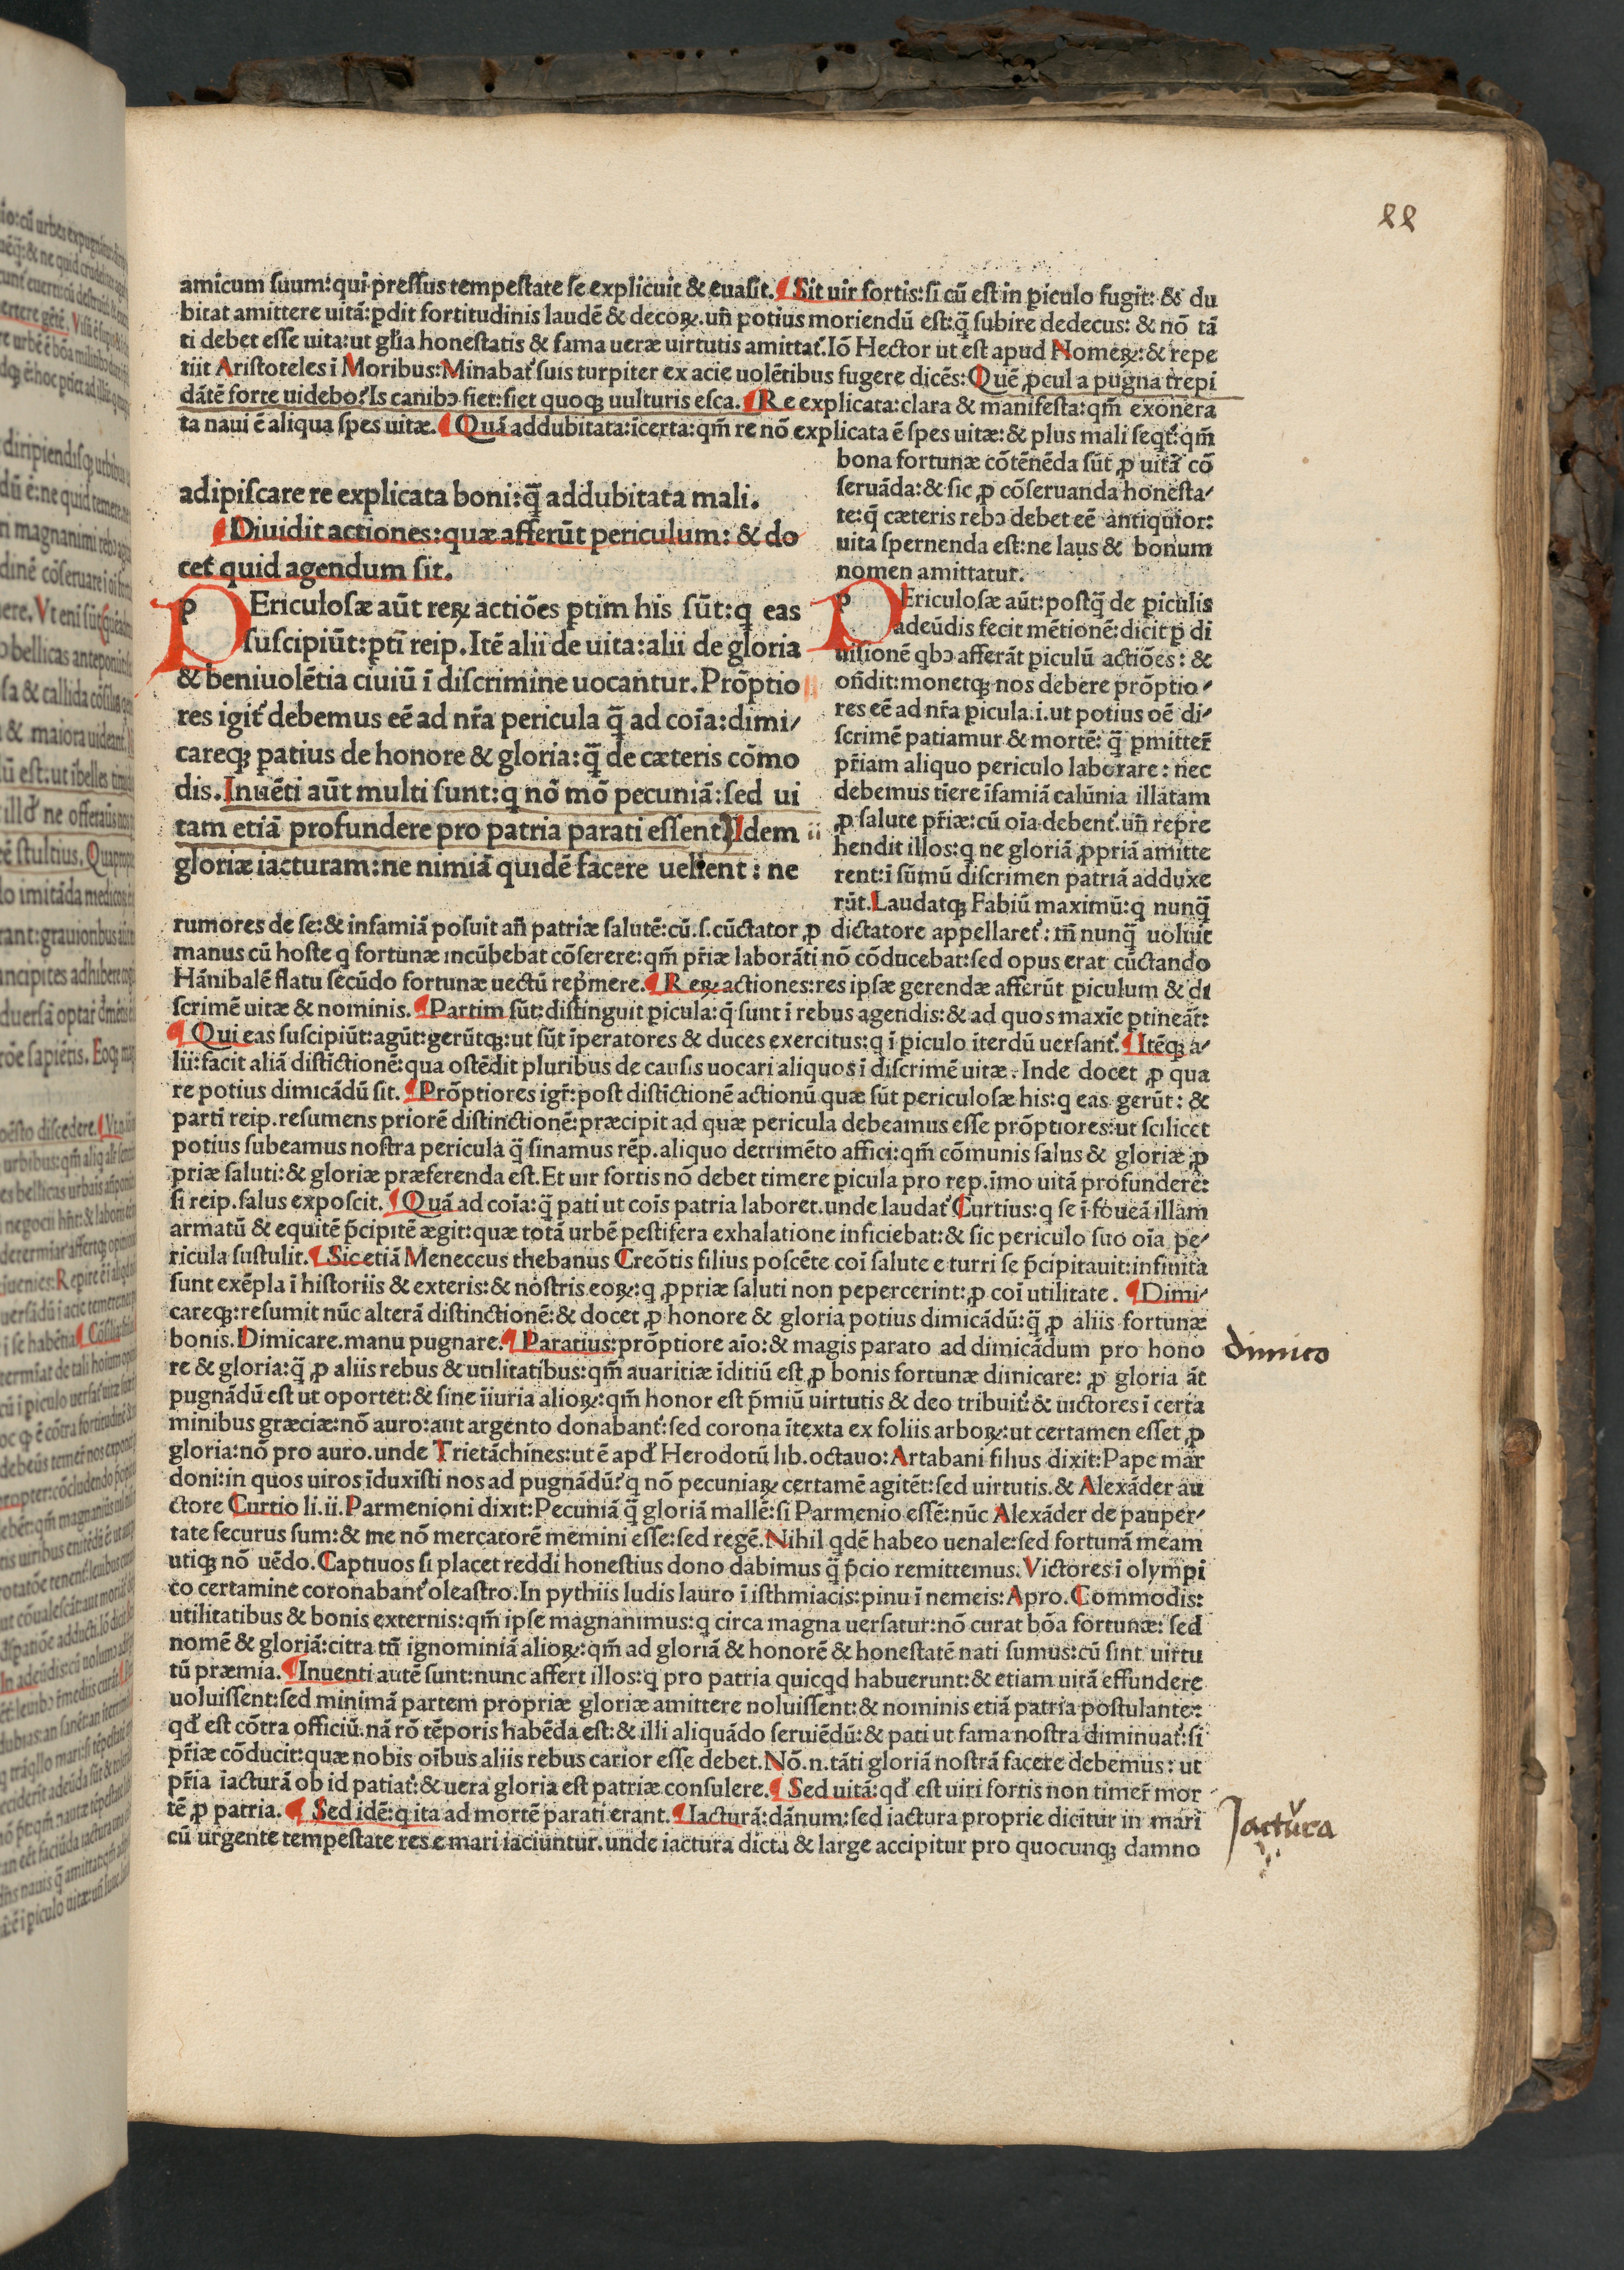 amicum ſuum: qui preſſus tempeſtate ſe explicuit & euaſit. ¶ Sit uir fortis: ſi cū eſt in ꝑiculo fugit: & du
bitat amittere uitā: ꝑdit fortitudinis laudē & decoꝝ. uñ potius moriendū eſt: q̄̈ ſubire dedecus: & nō tā
ti debet eſſe uita: ut gl'ia honeſtatis & fama ueræ uirtutis amittat᷑. Iō Hector ut eſt apud Nomeꝝ: & repe
tiit Ariſtoteles ī Moribus: Minabat᷑ ſuis turpiter ex acie uolētibus fugere dicēs: Quē ꝓcul a pugna trepi
dātē forte uidebo? Is canibↄ fiet: fiet quoqꝫ uulturis eſca. ¶ Re explicata: clara & manifeſta: qm̄ exonera
ta naui ē aliqua ſpes uitæ. ¶ Quā addubitata: īcerta: qm̄ re nō explicata ē ſpes uitæ: & plus mali ſeqt᷑: qm̄
bona fortunæ cōtēnēda ſūt ꝓ uitā cō
ſeruāda: & ſic ꝓ cōſeruanda honeſta-
te: q̄̈ cæteris rebↄ debet eē antiquior:
uita ſpernenda eſt: ne laus & bonum
nomen amittatur.
adipiſcare re explicata boni: q̄̈ addubitata mali.
¶ Diuidit actiones: quæ afferūt periculum: & do
cet᷑ quid agendum ſit.
PEriculoſæ aūt reꝝ actiōes ꝑtim his ſūt: q eas
ſuſcipiūt: ꝑtī reip. Itē alii de uita: alii de gloria
& beniuolētia ciuiū ī diſcrimine uocantur. Prōptio
res igit᷑ debemus eē ad nr̄a pericula q̄̈ ad coīa: dimi-
careqꝫ ꝑatius de honore & gloria: q̄̈ de cæteris cōmo
dis. Inuēti aūt multi ſunt: q nō mō pecuniā: ſed ui
tam etiā profundere pro patria parati eſſent. Idem
gloriæ iacturam: ne nimiā quidē facere uellent: ne
PEriculoſæ aūt: poſtq̄̈ de ꝑiculis
adeūdis fecit mētionē: dicit ꝑ di
uiſionē qbↄ afferāt ꝑiculū actiōes: &
oñdit: monetqꝫ nos debere prōptio-
res eē ad nr̄a ꝑicula .i. ut potius oē di-
ſcrimē patiamur & mortē: q̄̈ ꝑmitter̄
pr̄iam aliquo periculo laborare: nec
debemus tiere īfamiā calūnia illatam
ꝓ ſalute pr̄iæ: cū oīa debent᷑. uñ repre
hendit illos: q ne gloriā ꝓpriā amitte
rent: ī ſūmū diſcrimen patriā adduxe
rūt. Laudatqꝫ Fabiū maximū: q nunq̄̈
rumores de ſe: & infamiā poſuit añ patriæ ſalutē: cū .ſ. cūctator ꝓ dictatore appellaret᷑: tñ nunq̄̈ uoluit
manus cū hoſte q fortunæ incūbebat cōſerere: qm̄ pr̄iæ laborāti nō cōducebat: ſed opus erat cūctando
Hānibalē flatu ſecūdo fortunæ uectū rep̄mere. ¶ Reꝝ actiones: res ipſæ gerendæ afferūt ꝑiculum & di
ſcrimē uitæ & nominis. ¶ Partim ſūt: diſtinguit ꝑicula: q̄ ſunt ī rebus agendis: & ad quos maxīe ꝑtineāt᷑:
¶ Qui eas ſuſcipiūt: agūt: gerūtqꝫ: ut ſūt īperatores & duces exercitus: q ī ꝑiculo iterdū uerſant᷑. ¶ Itēqꝫ a-
lii: facit aliā diſtīctionē: qua oſtēdit pluribus de cauſis uocari aliquos ī diſcrimē uitæ. Inde docet ꝓ qua
re potius dimicādū ſit. ¶ Prōptiores igr̄: poſt diſtīctionē actionū quæ ſūt periculoſæ his: q eas gerūt: &
parti reip. reſumens priorē diſtinctionē: præcipit ad quæ pericula debeamus eſſe prōptiores: ut ſcilicet
potius ſubeamus noſtra pericula q̄̈ ſinamus rēp. aliquo detrimēto affici: qm̄ cōmunis ſalus & gloriæ ꝓ
priæ ſaluti: & gloriæ præferenda eſt. Et uir fortis nō debet timere ꝑicula pro rep. īmo uitā profundere:
ſi reip. ſalus expoſcit. ¶ Quā ad coīa: q̄̈ pati ut coīs patria laboret. unde laudat᷑ Curtius: q ſe ī foueā illam
armatū & equitē p̄cipitē ægit: quæ totā urbē peſtifera exhalatione inficiebat: & ſic periculo ſuo oīa pe-
ricula ſuſtulit. ¶ Sic etiā Meneceus thebanus Creōtis filius poſcēte coī ſalute e turri ſe p̄cipitauit: infinita
ſunt exēpla ī hiſtoriis & exteris: & noſtris eoꝝ: q ꝓpriæ ſaluti non pepercerint: ꝓ coī utilitate. ¶ Dimi-
careqꝫ: reſumit nūc alterā diſtinctionē: & docet ꝓ honore & gloria potius dimicādū: q̄̈ ꝓ aliis fortunæ
bonis. Dimicare. manu pugnare. ¶ Paratius: prōptiore aīo: & magis parato ad dimicādum pro hono
re & gloria: q̄̈ ꝓ aliis rebus & utilitatibus: qm̄ auaritiæ īditiū eſt ꝓ bonis fortunæ dimicare: ꝓ gloria āt
pugnādū eſt ut oportet: & ſine īiuria alioꝝ: qm̄ honor eſt p̄miū uirtutis & deo tribuit᷑: & uictores ī certa
minibus græciæ: nō auro: aut argento donabant᷑: ſed corona ītexta ex foliis arboꝝ: ut certamen eſſet ꝓ
gloria: nō pro auro. unde Trietāchines: ut ē apd' Herodotū lib. octauo: Artabani filius dixit: Pape mar
doni: in quos uiros īduxiſti nos ad pugnādū? q nō pecuniaꝝ certamē agitēt: ſed uirtutis. & Alexāder au
ctore Curtio li. ii. Parmenioni dixit: Pecuniā q̄̈ gloriā mallē: ſi Parmenio eſſē: nūc Alexāder de pauper-
tate ſecurus ſum: & me nō mercatorē memini eſſe: ſed regē. Nihil qdē habeo uenale: ſed fortunā meam
utiqꝫ nō uēdo. Captiuos ſi placet reddi honeſtius dono dabimus q̄̈ p̄cio remittemus. Victores ī olympi
co certamine coronabant᷑ oleaſtro. In pythiis ludis lauro ī iſthmiacis: pinu ī nemeis: Apro. Commodis:
utilitatibus & bonis externis: qm̄ ipſe magnanimus: q circa magna uerſatur: nō curat bōa fortunæ: ſed
nomē & gloriā: citra tñ ignominiā alioꝝ: qm̄ ad gloriā & honorē & honeſtatē nati ſumus: cū ſint uirtu
tū præmia. ¶ Inuenti autē ſunt: nunc affert illos: q pro patria quicqd habuerunt: & etiam uitā effundere
uoluiſſent: ſed minimā partem propriæ gloriæ amittere noluiſſent: & nominis etiā patria poſtulante:
qd' eſt cōtra officiū. nā rō tēporis habēda eſt: & illi aliquādo ſeruiēdū: & pati ut fama noſtra diminuat᷑: ſi
pr̄iæ cōducit: quæ nobis oībus aliis rebus carior eſſe debet. Nō .n. tāti gloriā noſtrā facere debemus: ut
pr̄ia iacturā ob id patiat᷑: & uera gloria eſt patriæ conſulere. ¶ Sed uitā: qd' eſt uiri fortis non timer̄ mor
tē ꝓ patria. ¶ Sed idē: q ita ad mortē parati erant. ¶ Iacturā: dānum: ſed iactura proprie dicitur in mari
cū urgente tempeſtate res e mari iaciuntur. unde iactura dicta & large accipitur pro quocunqꝫ damno
dimico
Jactura